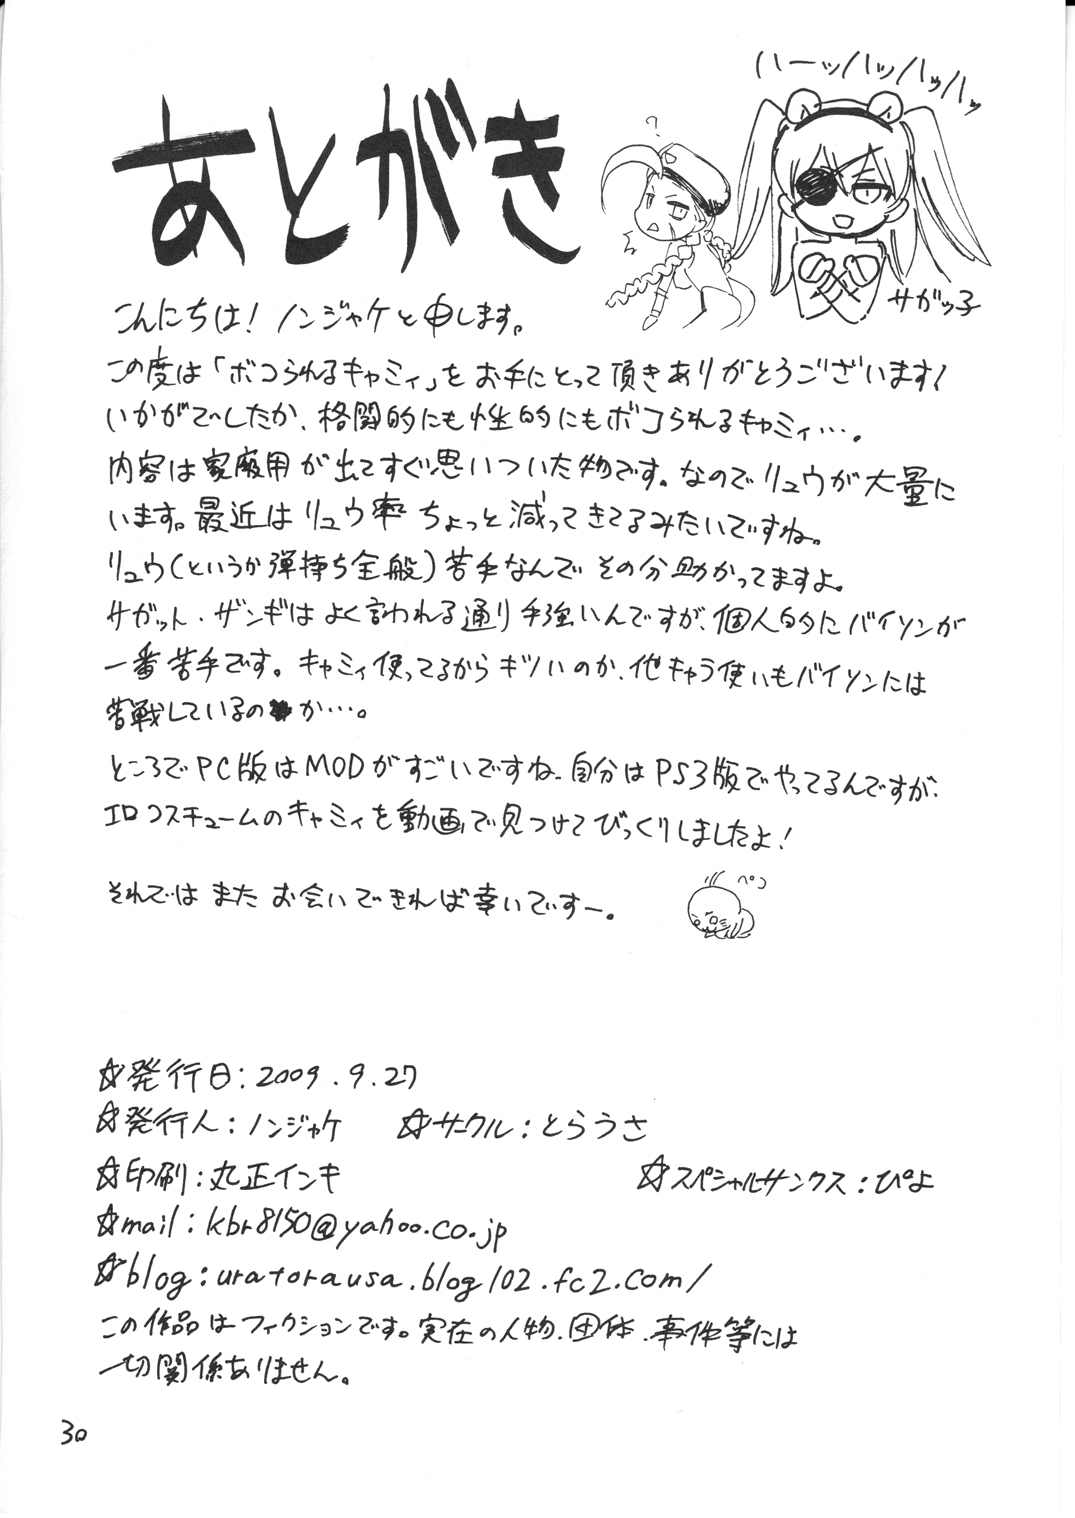 ハーッハッハッハッ
あとがき
?
サガッ子
こんにちは!ノンジャケと申します。
この度は「ボコられるキャミィ」をお手にとって頂きありがとうございます!
いかがでしたか、格闘的にも性的にもボコられるキャミィ…。
内容は家庭用が出てすぐ思いついた物です。なのでリュウが大量に
います。最近はリュウ率ちょっと減ってきてるみたいですね。
リュウ(というか弾持ち全般)苦手なんでその分助かってますよ。
サガット・ザンギはよく言われる通り手強いんですが、個人的にバイソンが
一番苦手です。キャミィ使ってるからキツいのか、他キャラ使いもバイソンには
苦戦しているのか…。
ところでPC版はMODがすごいですね、自分はPS3版でやってるんですが、
エロコスチュームのキャミィを動画で見つけてびっくりしましたよ!
ペコ
それではまたお会いできれば幸いですー。
☆発行日:2009.9.27
☆発行人:ノンジャケ ☆サークル:とらうさ
☆印刷:丸正インキ ☆スペシャルサンクス:ぴよ
☆mail:kbr8150@yahoo.co.jp
☆blog:uratorausa.blog102.fc2.com/
この作品はフィクションです。実在の人物、団体、事件等には
一切関係ありません。
30